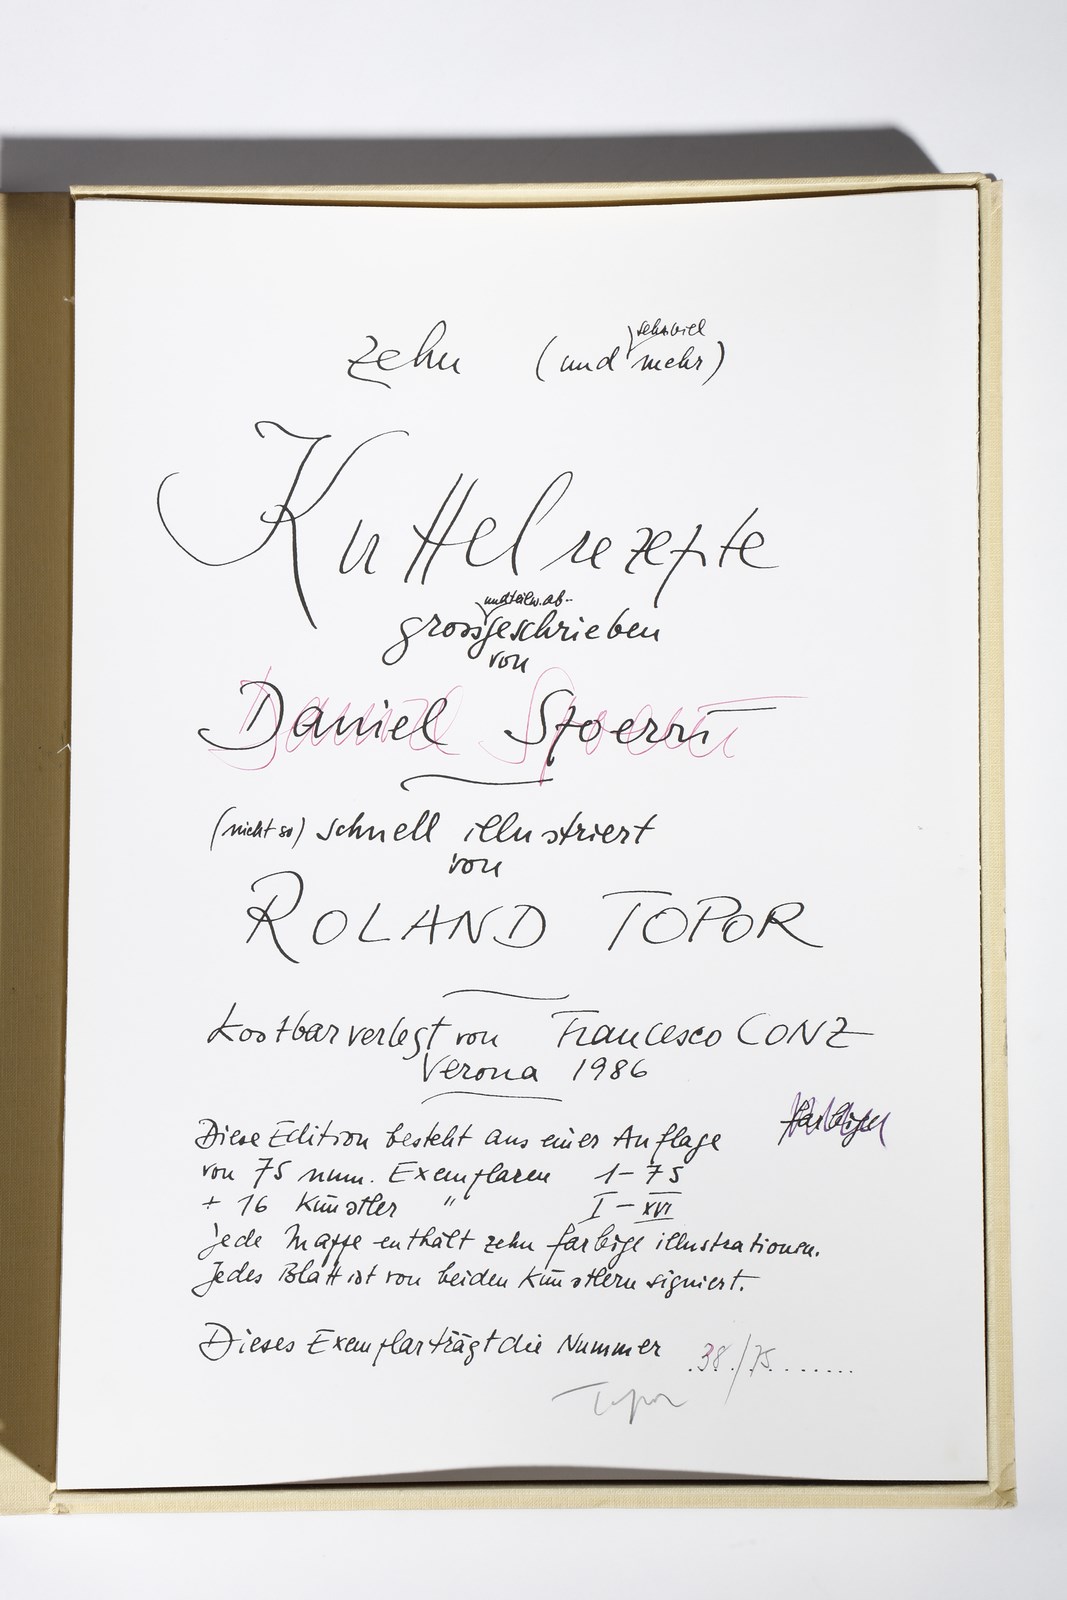 zehn (und sehr viel mehr)
Kuttelrezepte
und teilw. ab-
grossgeschrieben
von
Daniel Spoerri
(nicht so) schnell illustriert
von
ROLAND TOPOR
kostbar verlegt von Francesco CONZ
Verona 1986
Diese Edition besteht aus einer Auflage
von 75 num. Exemplaren 1-75
+ 16 Künstler " I - XVI
jede Mappe enthält zehn farbige illustrationen.
Jedes Blatt ist von beiden Künstlern signiert.
Dieses Exemplar trägt die Nummer 38/75
Topor